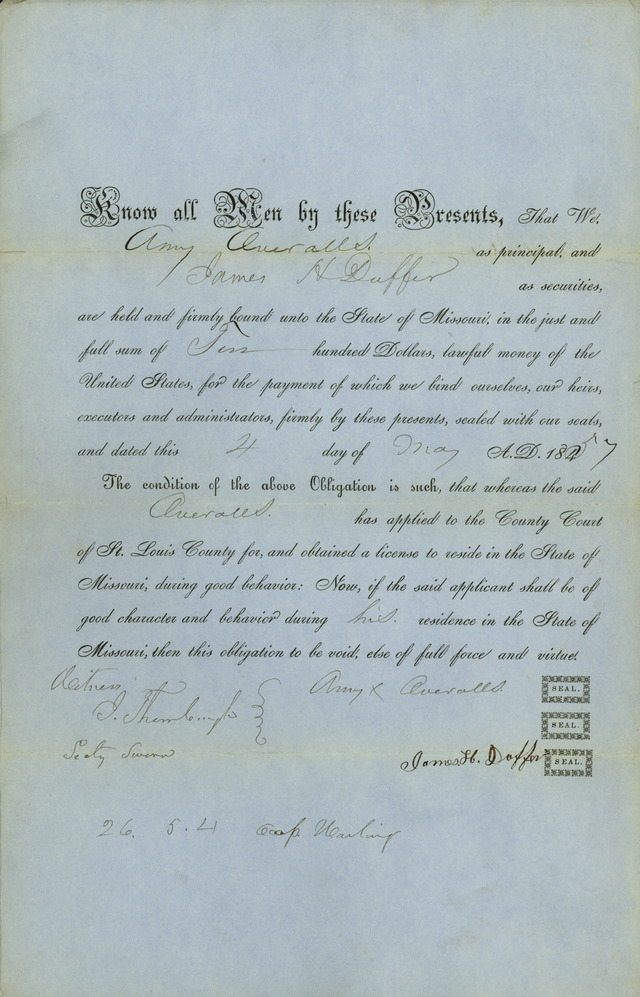 Know all Men by these Presents, That We,
Amy Averalls. as principal, and
James H Duffer as securities,
are held and firmly bound unto the State of Missouri, in the just and
full sum of Ten hundred Dollars, lawful money of the
United States, for the payment of which we bind ourselves, our heirs,
executors and administrators, firmly by these presents, sealed with our seals,
and dated this 4 day of May A.D. 1857
The condition of the above Obligation is such, that whereas the said
Averalls. has applied to the County Court
of St. Louis County for, and obtained a license to reside in the State of
Missouri, during good behavior: Now, if the said applicant shall be of
good character and behavior during his. residence in the State of
Missouri, then this obligation to be void, else of full force and virtue.
Witness Amy X Averalls. SEAL.
J. Thornburgh SEAL.
Secty Sworn James H. Duffer SEAL.
26. 5.4